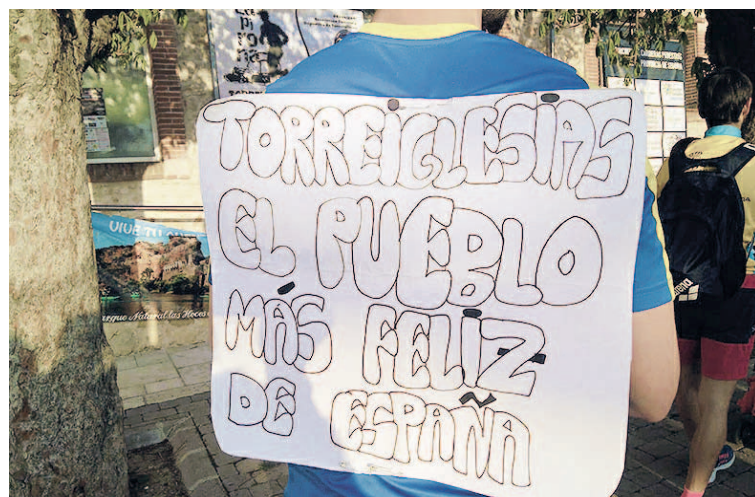 TORREIGLESIAS
EL PUEBLO
MÁS FELIZ
DE ESPAÑA
VIVE TU
Parque Natural las Hoces